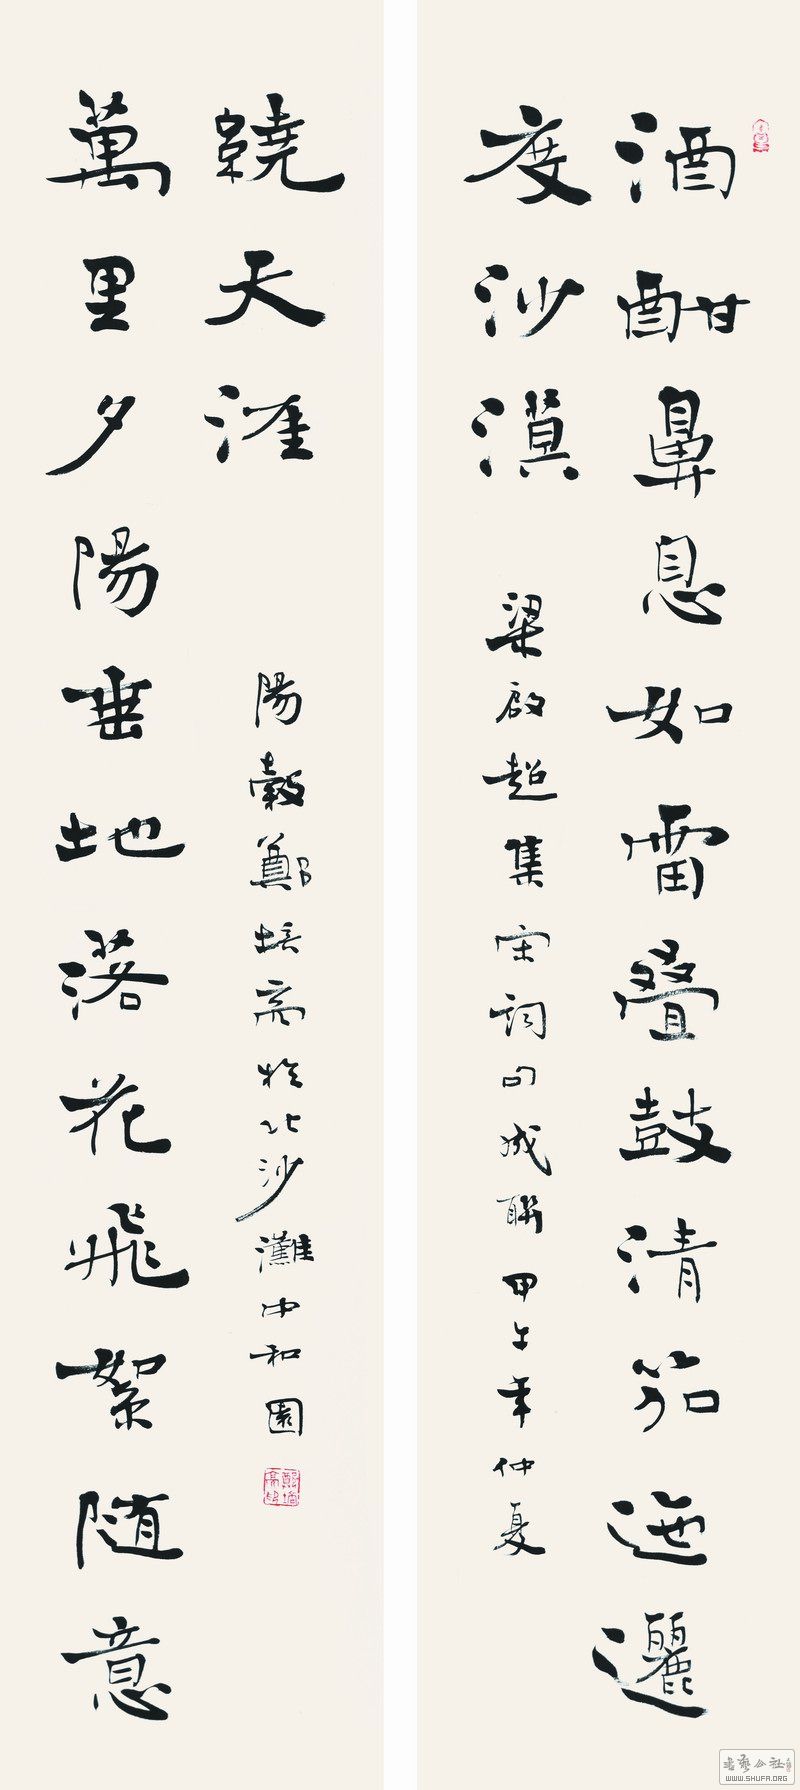 酒酣鼻息如雷叠鼓清笳迤邐
度沙漠
梁啟超集宋詞句成聯甲午年仲夏
萬里夕陽垂地落花飛絮随意
繞天涯
陽穀鄭培亮於北沙灘中和園
鄭培亮印
書藝公社
WWW.SHUFA.ORG